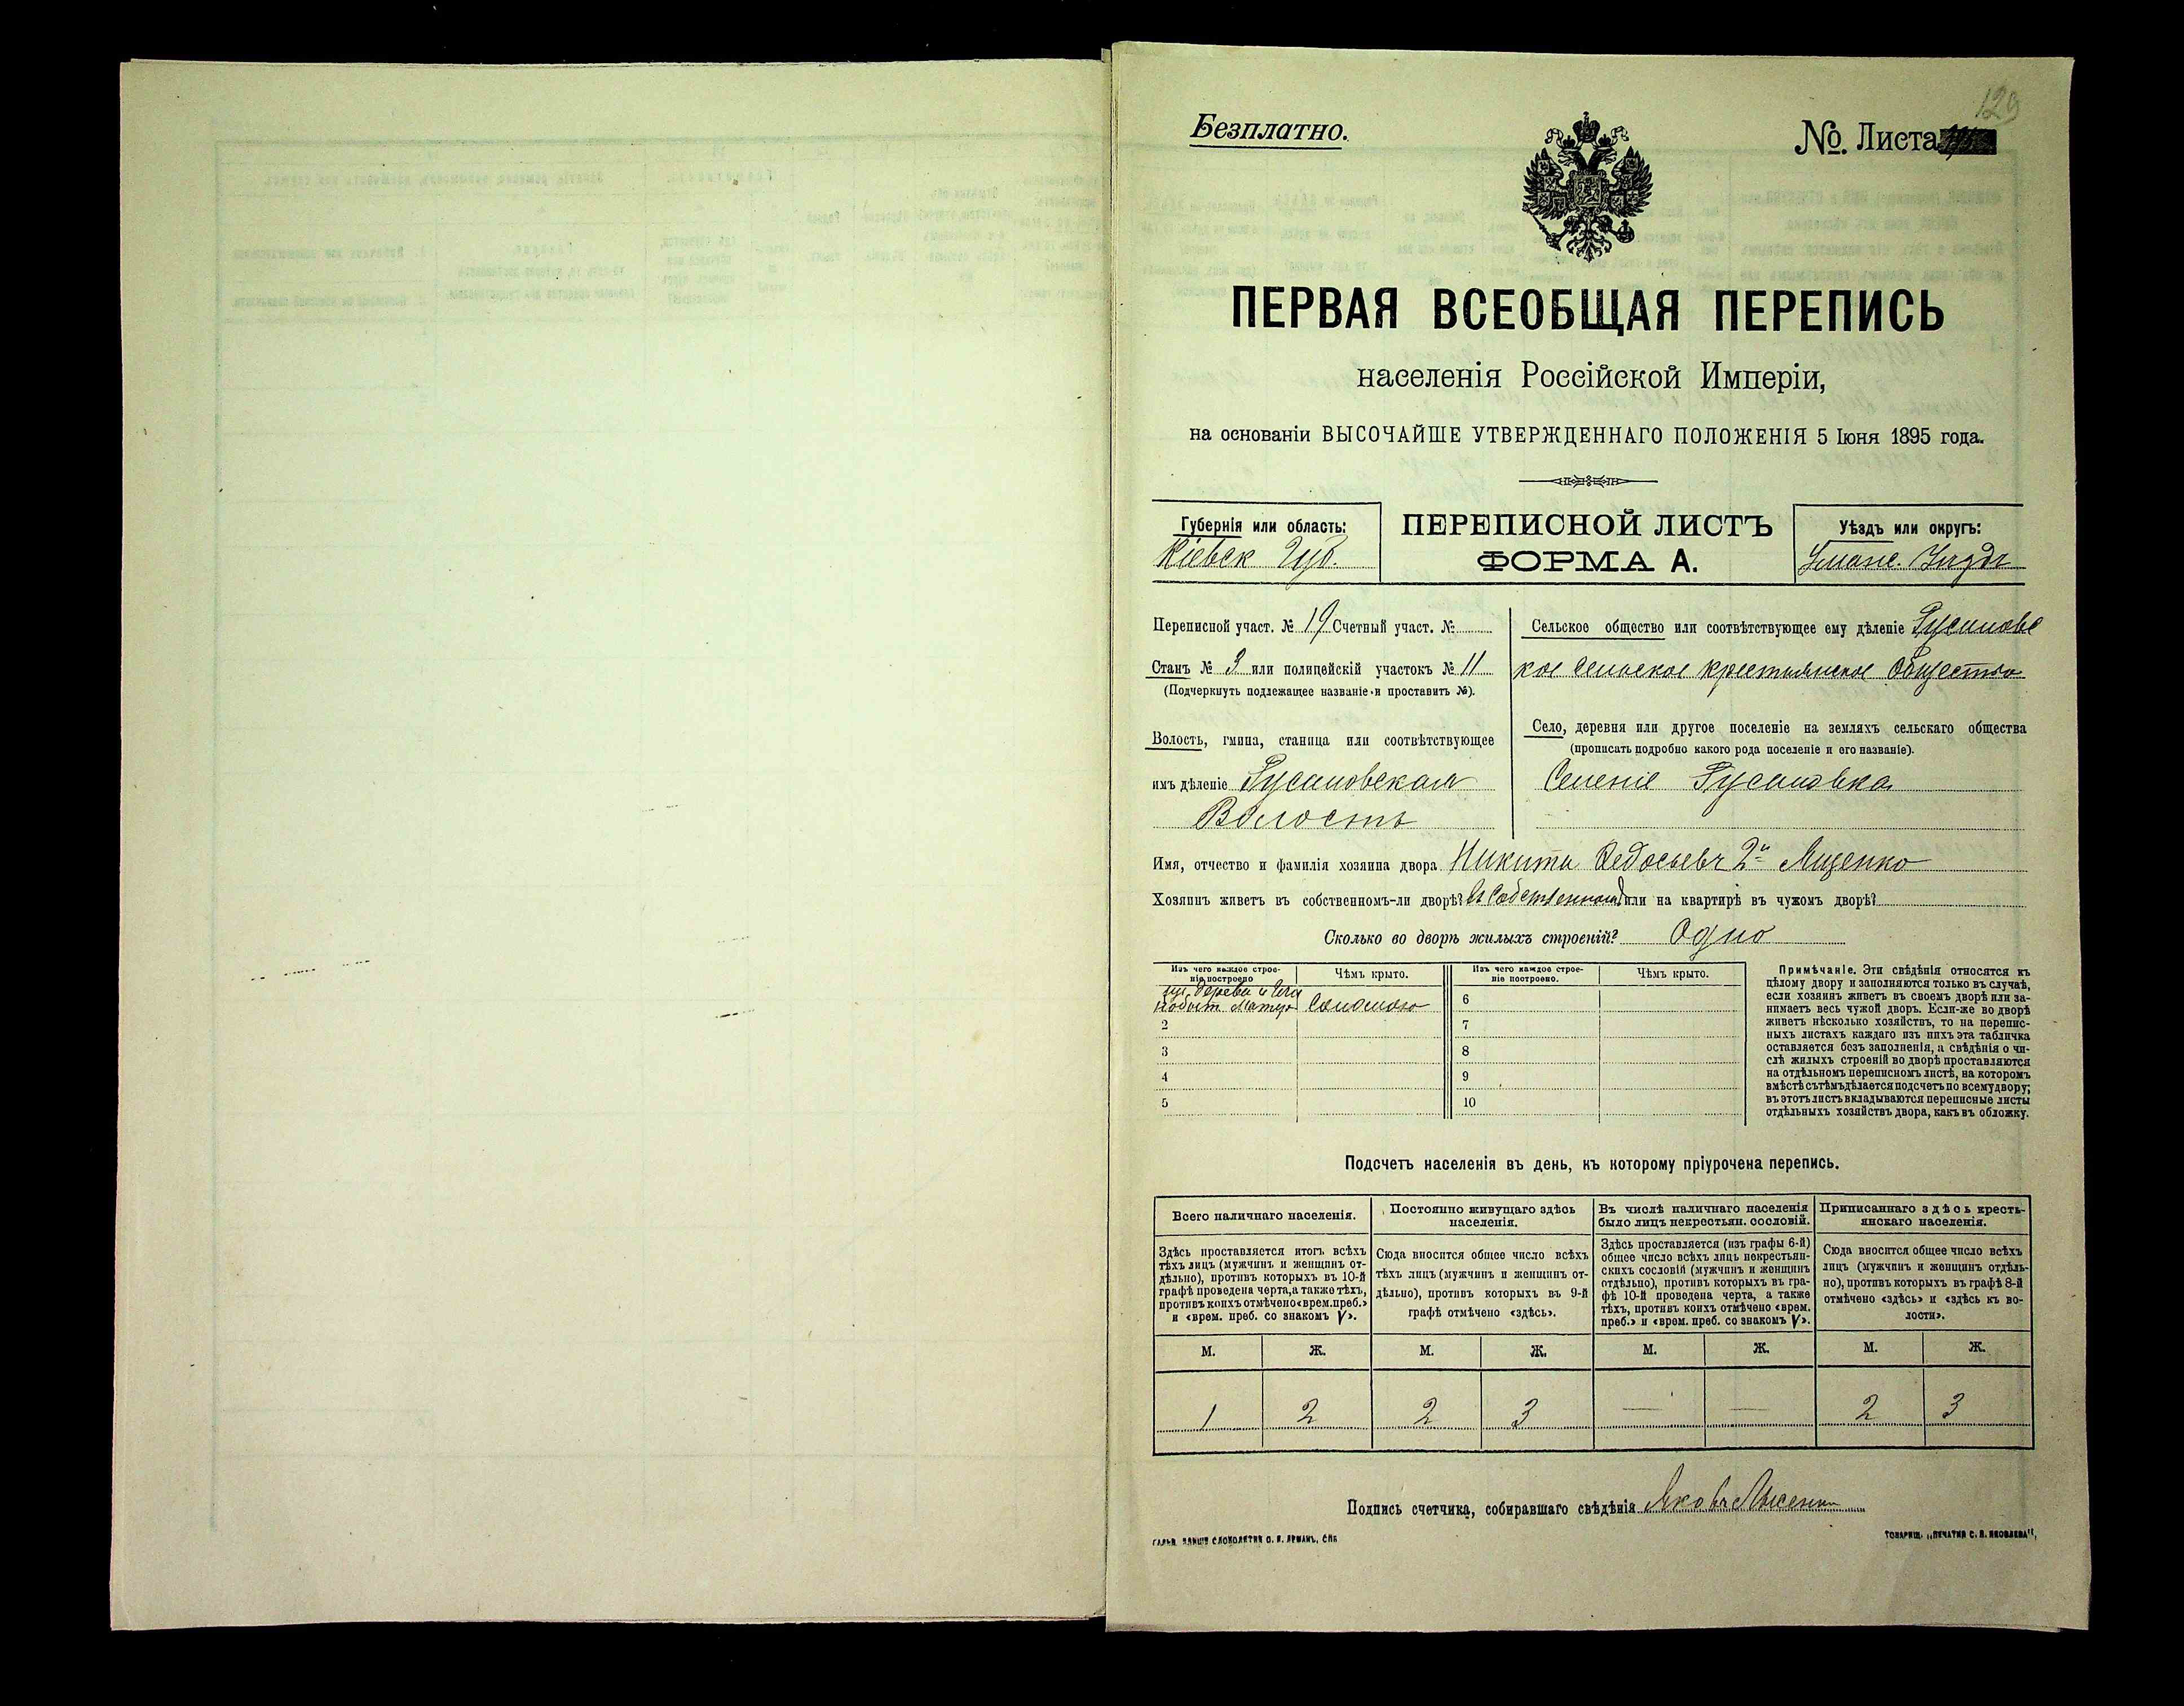 129
Безплатно.
№. Листа
ПЕРВАЯ ВСЕОБЩАЯ ПЕРЕПИСЬ
населенія Россійской Имперіи,
на основаніи ВЫСОЧАЙШЕ УТВЕРЖДЕННАГО ПОЛОЖЕНІЯ 5 Іюня 1895 года.
Губернія или область:
Кіевск Губ.
ПЕРЕПИСНОЙ ЛИСТЪ
ФОРМА А.
Уѣздъ или округъ:
Уманс. Уѣздъ
Переписной участ. № 19 Счетный участ. №
Станъ № 3 или полицейскій участокъ № 11
(Подчеркнуть подлежащее названіе и проставить №).
Волость, гмина, станица или соотвѣтствующее
имъ дѣленіе Русаловская
Волость
Сельское общество или соотвѣтствующее ему дѣленіе Русаловс
кое Сельское крестьянское Общество
Село, деревня или другое поселеніе на земляхъ сельскаго общества
(прописать подробно какого рода поселеніе и его названіе).
Селеніе Русаловка
Имя, отчество и фамилія хозяина двора Никита Федосьевъ 2й Лященко
Хозяинъ живетъ въ собственномъ-ли дворѣ? Въ Собственномъ или на квартирѣ въ чужомъ дворѣ?
Сколько во дворѣ жилыхъ строеній? Одно
Изъ чего каждое строе-
ніе построено
Чѣмъ крыто.
Изъ чего каждое строе-
ніе построено.
Чѣмъ крыто.
дерева и
Соломою
2
3
4
5
6
7
8
9
10
Примѣчаніе. Эти свѣдѣнія относятся къ
цѣлому двору и заполняются только въ случаѣ,
если хозяинъ живетъ въ своемъ дворѣ или за-
нимаетъ весь чужой дворъ. Если-же во дворѣ
живетъ нѣсколько хозяйствъ, то на перепис-
ныхъ листахъ каждаго изъ нихъ эта табличка
оставляется безъ заполненія, а свѣдѣнія о чи-
слѣ жилыхъ строеній во дворѣ проставляются
на отдѣльномъ переписномъ листѣ, на которомъ
вмѣстѣ съ тѣмъ дѣлается подсчетъ по всему двору;
въ этотъ листъ вкладываются переписные листы
отдѣльныхъ хозяйствъ двора, какъ въ обложку.
Подсчетъ населенія въ день, къ которому пріурочена перепись.
Всего наличнаго населенія.
Постоянно живущаго здѣсь
населенія.
Въ числѣ наличнаго населенія
было лицъ некрестьян. сословій.
Приписаннаго здѣсь кресть-
янскаго населенія.
Здѣсь проставляется итогъ всѣхъ
тѣхъ лицъ (мужчинъ и женщинъ от-
дѣльно), противъ которыхъ въ 10-й
графѣ проведена черта, а также тѣхъ,
противъ коихъ отмѣчено «врем. преб.»
и «врем. преб. со знакомъ V».
Сюда вносится общее число всѣхъ
тѣхъ лицъ (мужчинъ и женщинъ от-
дѣльно), противъ которыхъ въ 9-й
графѣ отмѣчено «здѣсь».
Здѣсь проставляется (изъ графы 6-й)
общее число всѣхъ лицъ некрестьян-
скихъ сословій (мужчинъ и женщинъ
отдѣльно), противъ которыхъ въ гра-
фѣ 10-й проведена черта, а также
тѣхъ, противъ коихъ отмѣчено «врем.
преб.» и «врем. преб. со знакомъ V».
Сюда вносится общее число всѣхъ
лицъ (мужчинъ и женщинъ отдѣль-
но), противъ которыхъ въ графѣ 8-й
отмѣчено «здѣсь» и «здѣсь къ во-
лости».
М. Ж. М. Ж. М. Ж. М. Ж.
1 2 2 3 — — 2 3
Подпись счетчика, собиравшаго свѣдѣнія Яковъ Лысенко
ТОВАРИЩ. „ПЕЧАТНЯ С. П. ЯКОВЛЕВА",